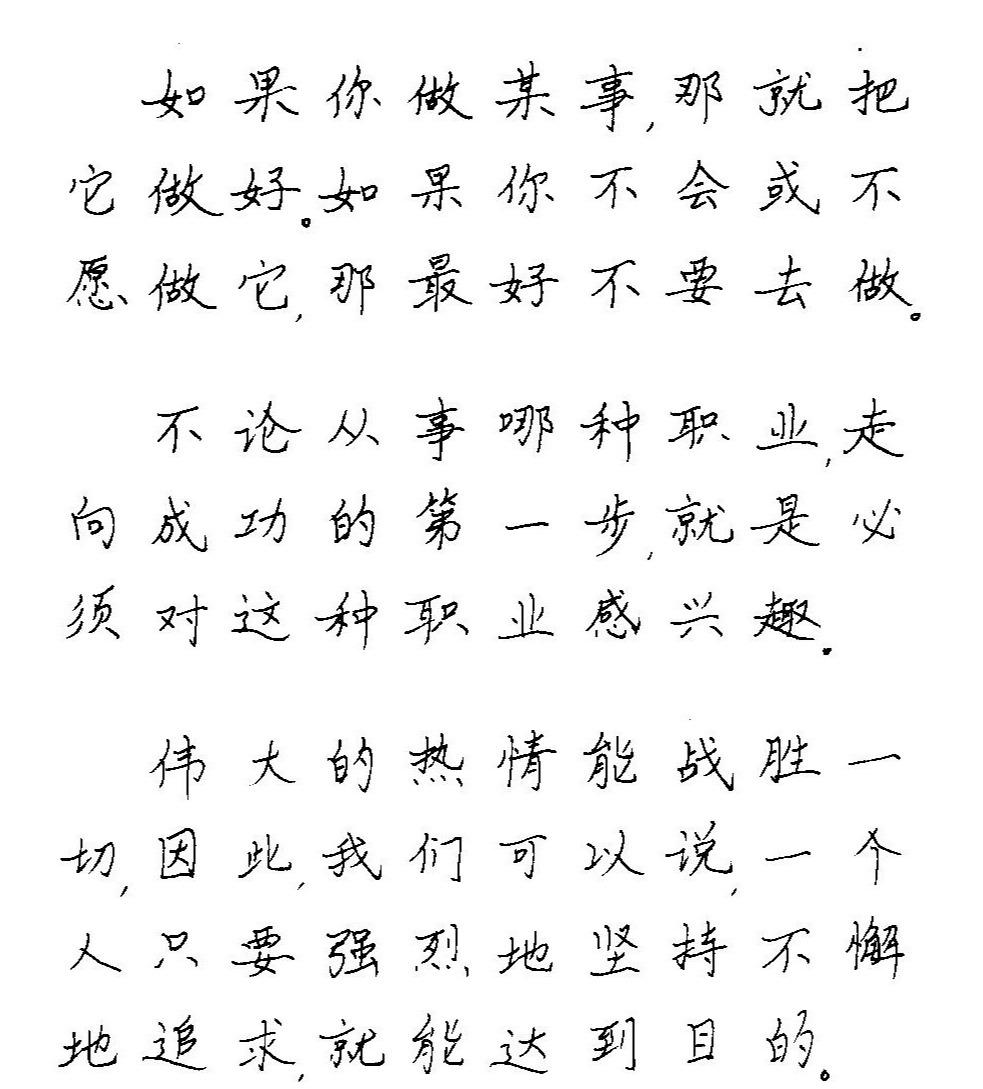 如果你做某事,那就把
它做好。如果你不会或不
愿做它,那最好不要去做。
不论从事哪种职业,走
向成功的第一步,就是必
须对这种职业感兴趣。
伟大的热情能战胜一
切,因此,我们可以说,一个
人只要强烈地坚持不懈
地追求,就能达到目的。